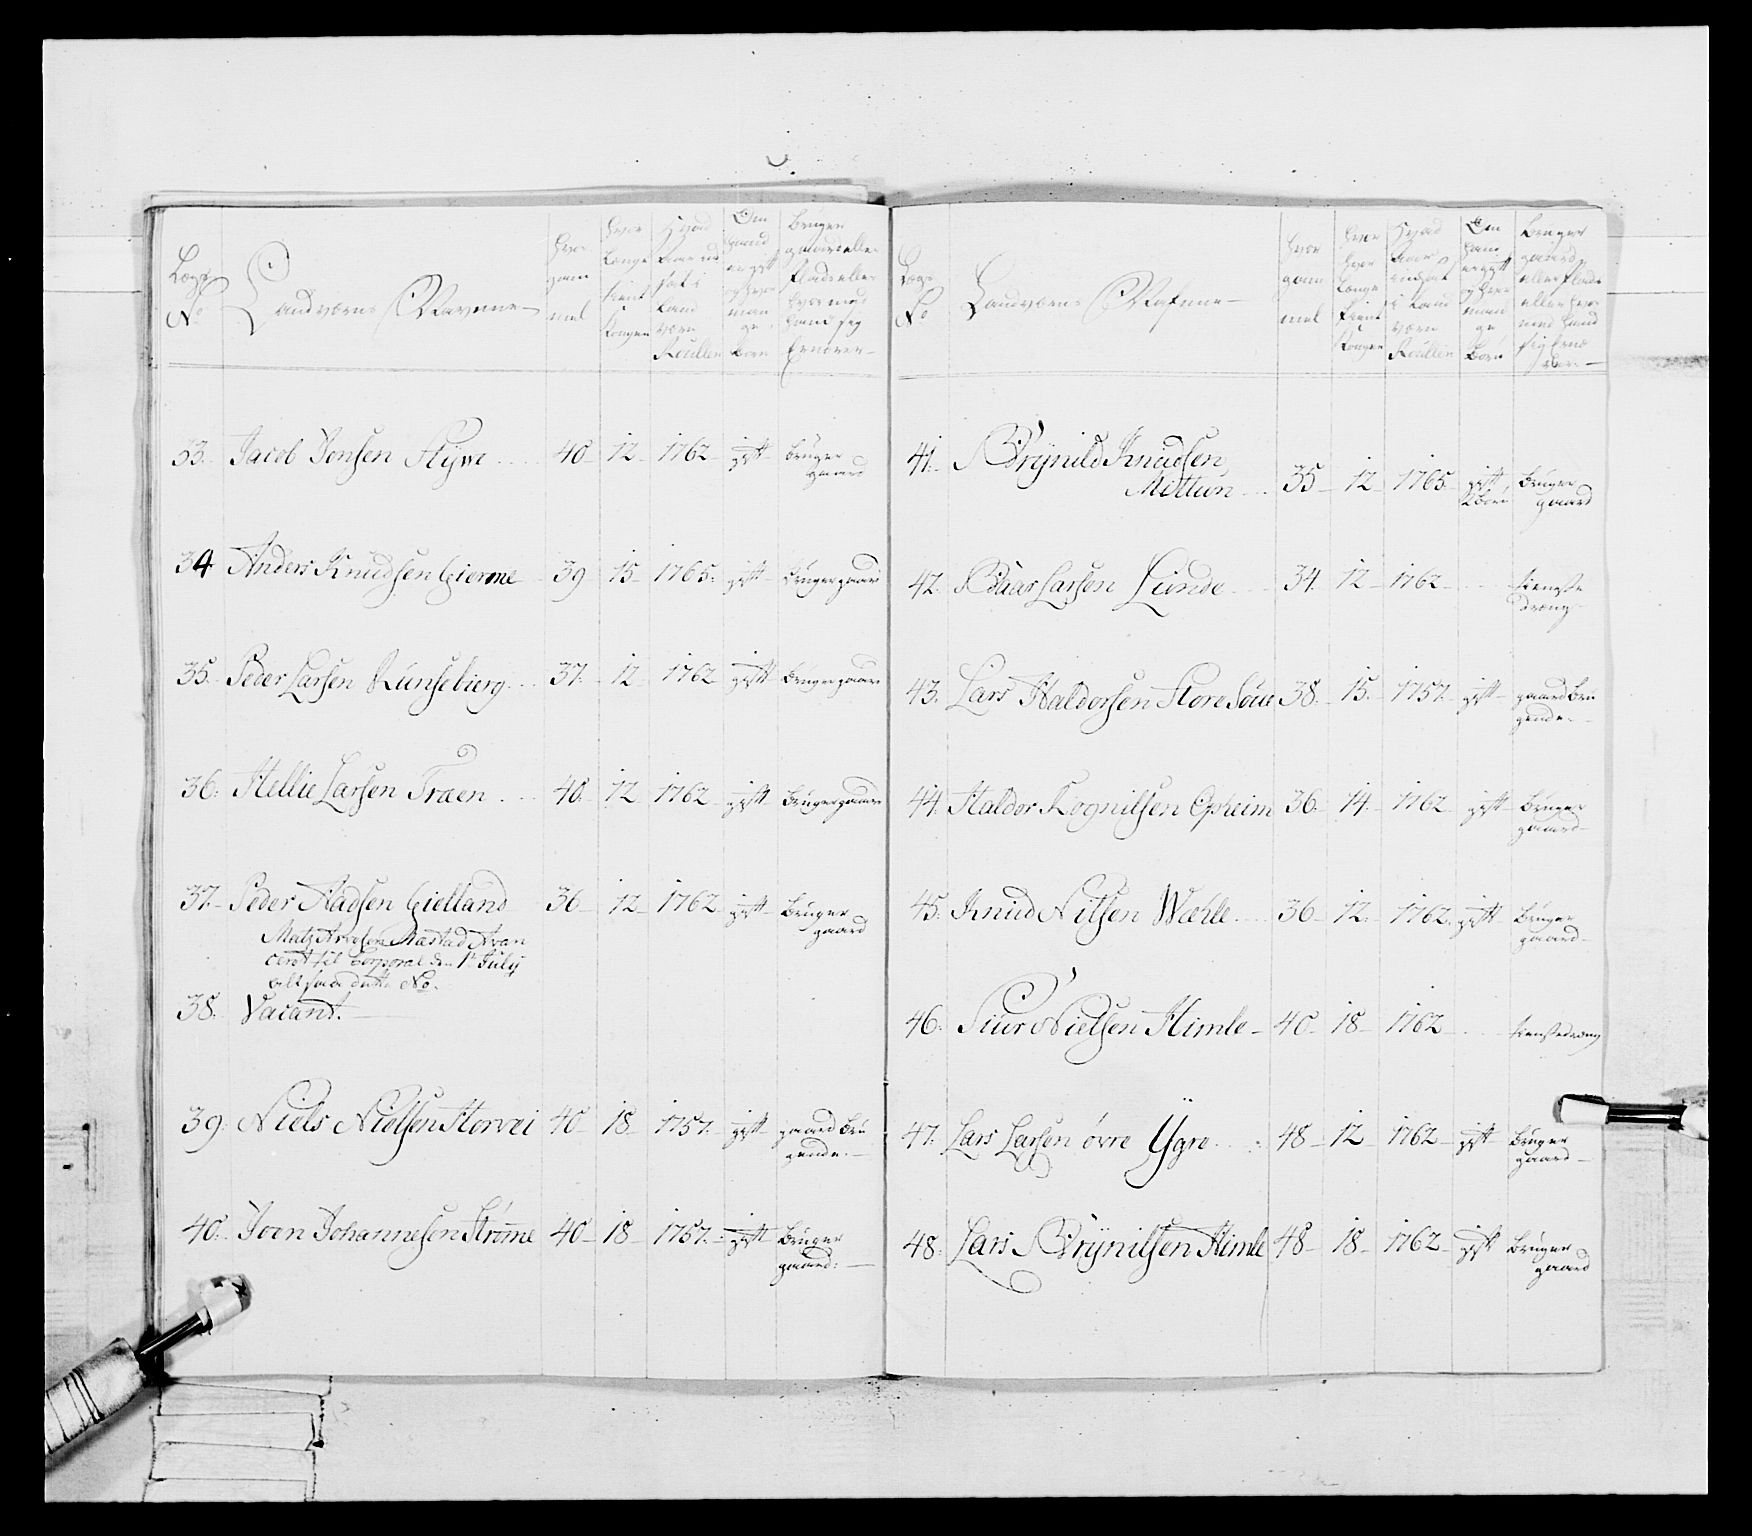 Lægs No
Landværns Navnene
hvor gam mel
hvor længe tient Kongen
Hvad Aar ind sat i Land værn Roullen
Om hand er gift og hvor man ge Børn
Bruger gaard eller Plads eller hvormed hand sig Ernærer
33. Jacob Jonsen Flÿve 40 12 1762 gift Bruger gaard
34 Anders Knudsen Gierme 39 15 1765. gift Bruger gaard
35. Peder Larsen Rúnsebierg 37. 12 1762 gift Bruger gaard
36. Hellie Larsen Traen 40. 12 1762 gift Bruger gaard
37. Peder Aadsen Gielland 36 12 1762 gift Bruger gaard
Matz Arvesen Mæstad Avan
ceret til Corporal den 1te Julÿ
altsaa dette No.
38. Vacant.
39. Niels Nielsen Horvei 40 18 1757. gift gaard Bru gende.
40. Joen Johannesen Strøme 40 18 1757. gift Bruger gaard.
Lægs No
Landværns Nafnene
hvor gam mel
hvor længe tient Kongen
Hvad Aar indsat i Land værn Roullen
Om hand er gift og hvor man ge Børn
Bruger gaard eller Plads eller hvor med hand sig Ernæ rer.
41. Brÿnild Knudsen
Mittun 35 12 1765 gift 2 børn Bruger gaard
42. Baar Larsen Lúnde 34. 12 1762 tieneste dreng
43. Lars Haldorsen Store Soúe 38. 15. 1757. gift gaard Bru gende.
44. Haldor Rognilsen Opheim 36. 14. 1762 gift Bruger gaard
45. Knud Nilsen Wæhle 36 12. 1762. gift Bruger gaard
46. Siur Nielsen Himle 40 18 1762 tienstedreng
47. Lars Larsen øvre Ÿgre 48 12 1762 gift Bruger gaard
48. Lars Brÿnilsen Himle 48 18 1762 gift Bruger gaard